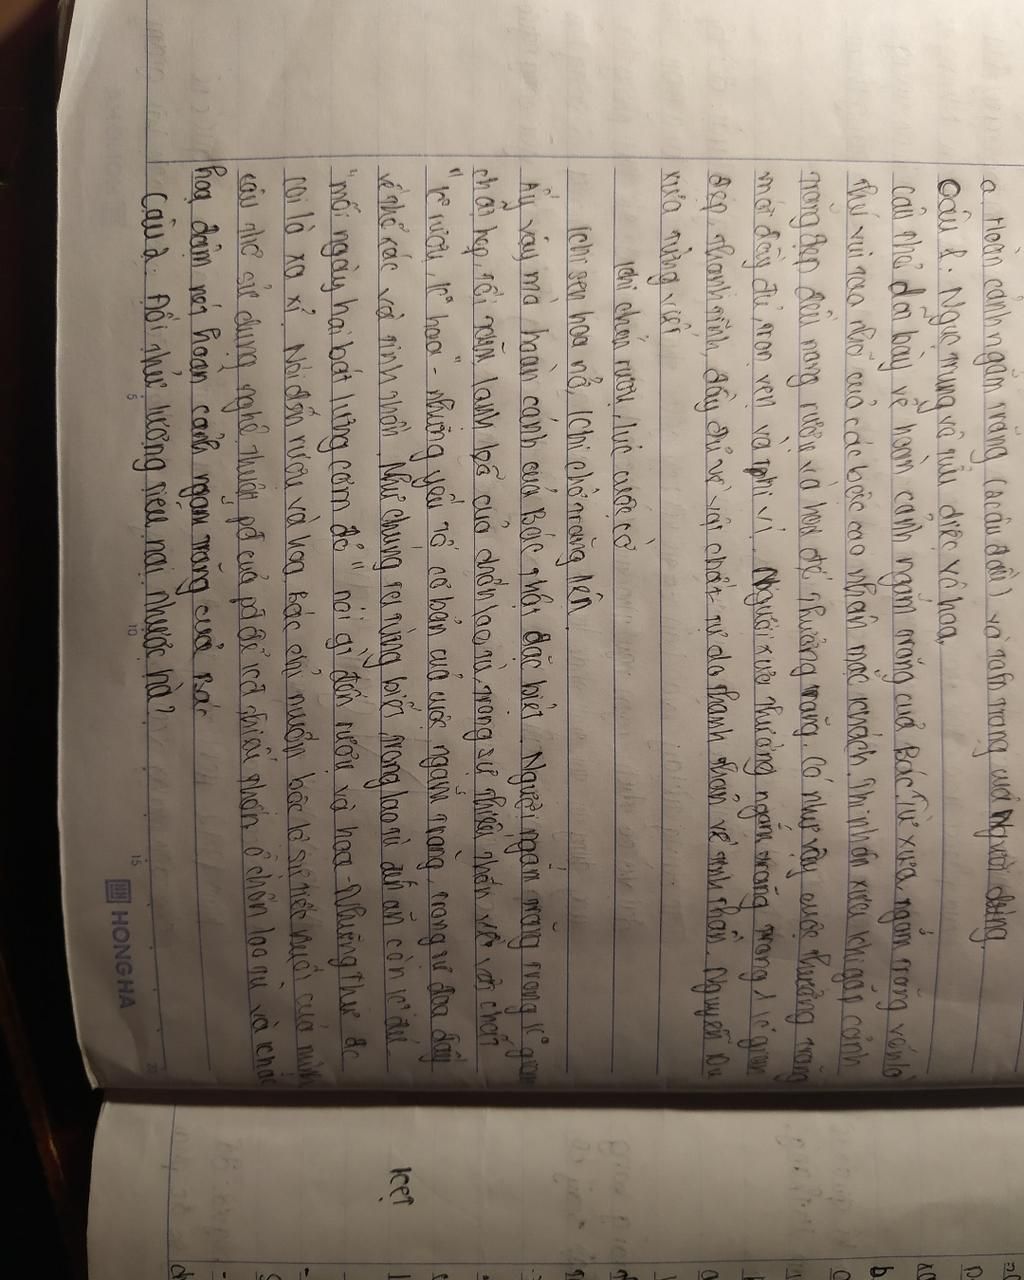 a. Hoàn cảnh ngắm trăng (2 câu đầu) và tâm trạng của người dùng
Câu 1. Ngục trung vô tửu diệc vô hoa,
Câu thơ đã bày về hoàn cảnh ngắm trăng của Bác. Từ xưa, ngắm trăng vốn là
thú vui tao nhã của các bậc cao nhân mặc khách. Thi nhân xưa khi gặp cảnh
trăng đẹp đều mang rượu và hoa để thưởng trăng. Có như vậy cuộc thưởng trăng
mới đầy đủ, trọn vẹn và thi vị. Người xưa thường ngắm trăng trong 1 k gian
đẹp, thanh tĩnh, đầy đủ về vật chất, tự do thanh thản về tinh thần. Nguyễn Du
xưa từng viết
Khi chén rượu, lúc cuộc cờ
Khi sen hoa nở, khi chờ trăng lên.
Ấy vậy mà hoàn cảnh của Bác thật đặc biệt. Người ngắm trăng trong k gian
chật hẹp, tối tăm lạnh lẽo của chốn lao tù, trong sự thiếu thốn về vật chất
"k rượu, k hoa" - những yếu tố cơ bản của cuộc ngắm trăng, trong sự đoạ đầy
về thể xác và tinh thần. Như chúng ta từng biết, trong lao tù đến ăn còn k đủ
"mỗi ngày hai bát lưng cơm đỏ" nói gì đến rượu và hoa - những thứ đc
coi là xa xỉ. Nói đến rượu và hoa Bác chỉ muốn bộc lộ sự tiếc nuối của mình
câu thơ sử dụng nghệ thuật pđ của pđ để tả thiếu thốn ở chốn lao tù và khắc
hoạ đậm nét hoàn cảnh ngắm trăng của Bác
Câu 2. Đối thử lương tiêu nại nhược hà?
5
10
15
20
HONG HA
kẹt